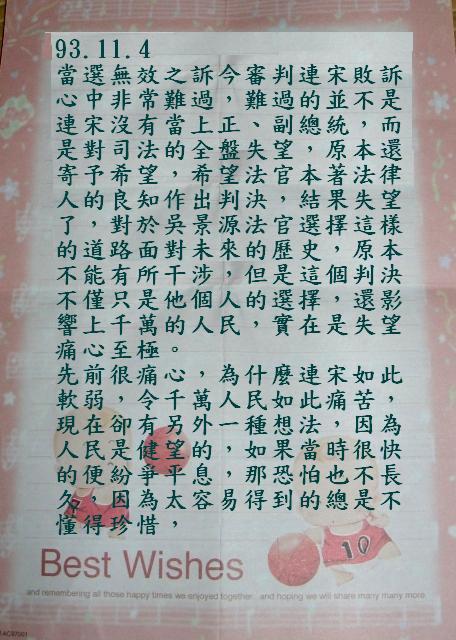 93.11.4
當選無效之訴今審判連宋敗訴
心中非常難過，難過的並不是
連宋沒有當上正、副總統，而
是對司法的全盤失望，原本還
寄予希望，希望法官本著法律
人的良知，作出判決，結果失望
了，對於吳景源法官選擇這樣
的道路面對未來的歷史，原本
不能有所干涉，但是這個判決
不僅只是他個人的選擇，還影
響上千萬的人民，實在是失望
痛心至極。
先前很痛心，為什麼連宋如此，
軟弱，令千萬人民如此痛苦，
現在卻有另外一種想法，因為
人民是健望的，如果當時很快
的便紛爭平息，那恐怕也不長
久，因為太容易得到的總是不
懂得珍惜，
Best Wishes
and remembering all those happy times we enjoyed together and hoping we will share many many more
10